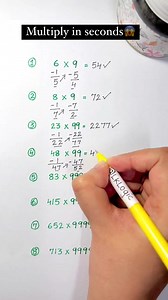 Multiply in seconds😱
① 6 × 9 = 54 ✓
-1 -5
5 4
② 8 × 9 = 72 ✓
-1 -7
7 2
③ 23 × 99 = 2277 ✓
-1 -22
22 77
④ 48 × 99 = 4
-1 -47
47 52
⑤ 83 × 99
⑥ 415 × 9
⑦ 652 × 999
⑧ 713 × 999